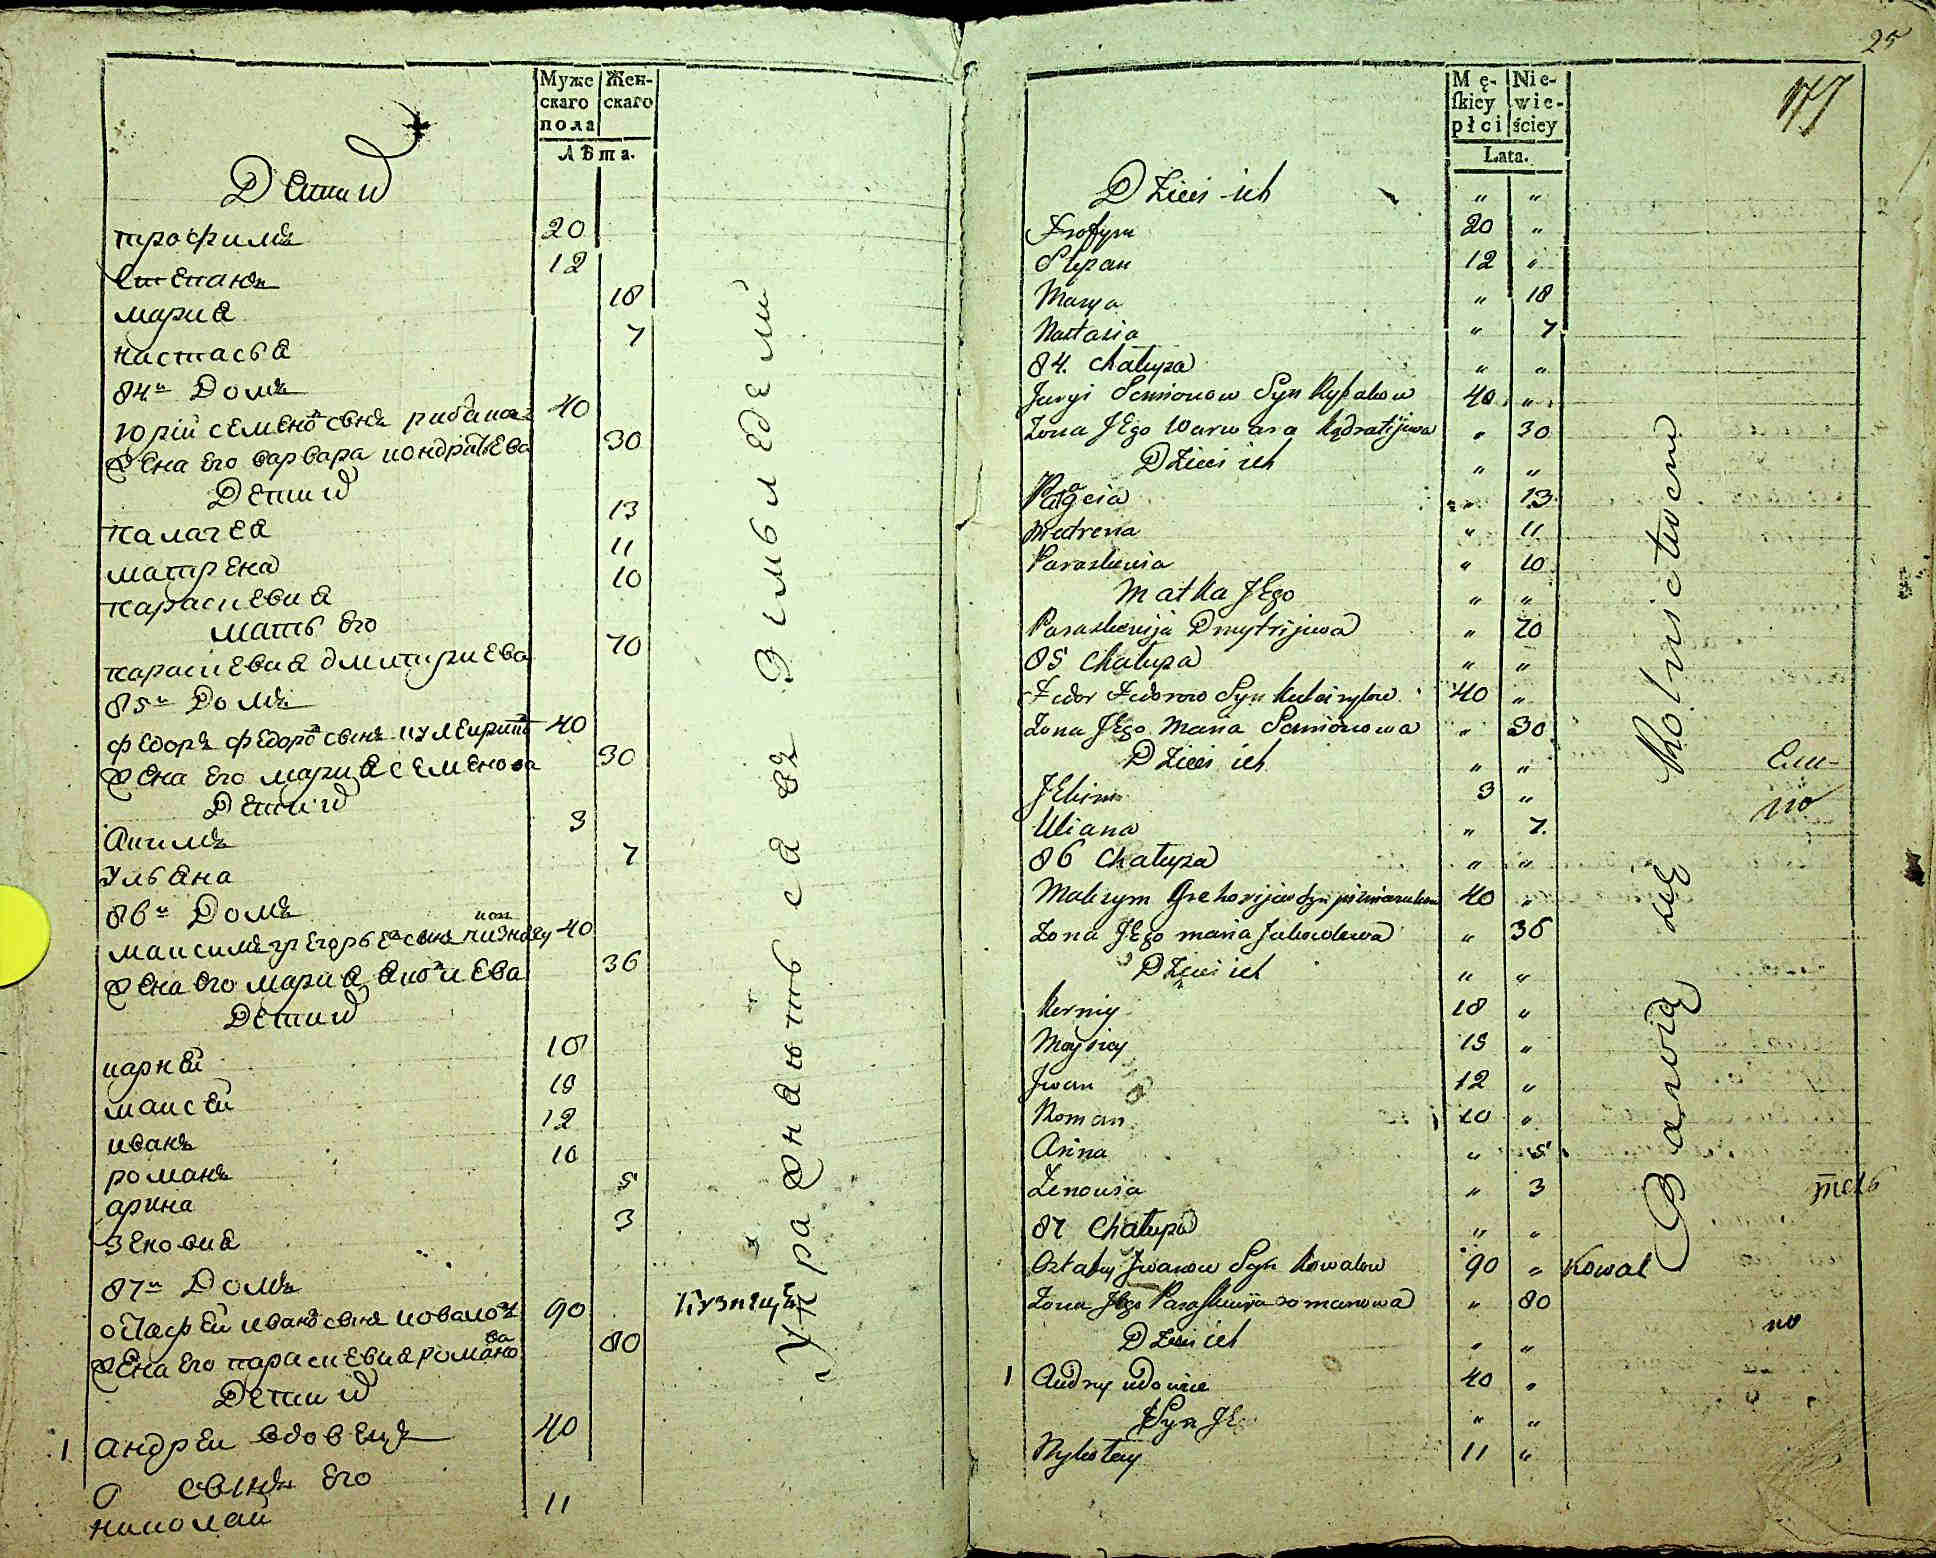 Муже
скаго
пола
Жен-
скаго
Лѣта.
Дети
трофимъ 20
степанъ 12
мариа 18
настасьа 7
84й Домъ
Юрій семеновъ сынъ рибаковъ 40
жена его варвара кондратьева 30
Дети
палагеа 13
матрена 11
параскевиа 10
мать его
параскевиа дмитриева 70
85й Домъ
федоръ федоровъ сынъ 40
жена его мариа семенова 30
Дети
Акимъ 3
Ульяна 7
86й Домъ
максимъ грегорьевъ сынъ 40
жена его мариа 36
Дети
карней 18
маисей 15
иванъ 12
романъ 10
арина 5
зеновиа 3
87й Домъ
остафей ивановъ сынъ коваловъ 90 Кузнецъ
жена его параскевиа романова 80
Дети
1 андрей вдовецъ 40
сынъ его
николай 11
Упражнаютьса въ Земледелии
25
Mę-
skiey
płci
Nie-
wie-
ściey
Lata.
Dzieci ich " "
Trofym 20 "
Stepan 12 "
Marya " 18
Nastasia " 7
84. Chałupa " "
Juryi Semionow Syn Rybakow 40 "
Zona JEgo Warwara Kądratijwa " 30
Dzieci ich " "
Pałageia " 13
Matrena " 11
Paraskewia " 10
Matka JEgo " "
Paraskewija Dmytrijewa " 70
85 Chałupa " "
Fedor Fedorow Syn 40 "
Zona JEgo Maria Semionowa " 30
Dzieci ich " "
JEkim 3 "
Uliana " 7.
86 Chałupa " "
Maksym Grehorijew Syn 40 "
Zona JEgo maria Jakowlewa " 36
Dzieci ich " "
Kerniy 18 "
Moysiey 15 "
Jwan 12 "
Roman 10 "
Arina " 5
Zenowia " 3
87 Chałupa " "
Ostafiy Jwanow Syn Kowalow 90 " Kowal
Zona JEgo Paraskewija Romanowa " 80
Dzieci ich " "
1 Andrey udowiec 40 "
Syn JEgo " "
Nykołay 11 "
Bawią się Rolnictwem
по
тель
по